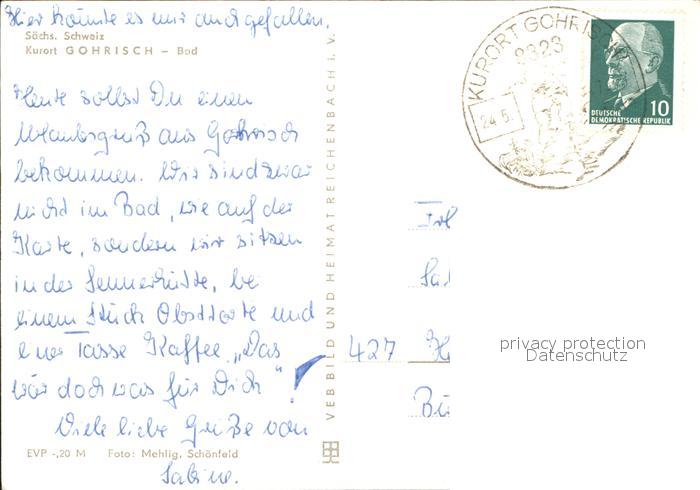 Hier könnte es mir auch gefallen.
Sächs. Schweiz
Kurort GOHRISCH – Bad
Heute sollst Du einen
Urlaubsgruß aus Gohrisch
bekommen. Wir sind zwar
nicht im Bad, wie auf der
Karte, sondern wir sitzen
in der Sennerhütte, bei
einem Stück Obsttorte und
einer Tasse Kaffee. „Das
wär doch was für Dich"!
Viele liebe Grüße von
Sabine.
EVP -,20 M Foto: Mehlig, Schönfeld
VEB BILD UND HEIMAT REICHENBACH i. V.
KURORT GOHRIS
8323
24.5.
10
DEUTSCHE
DEMOKRATISCHE REPUBLIK
427
privacy protection
Datenschutz